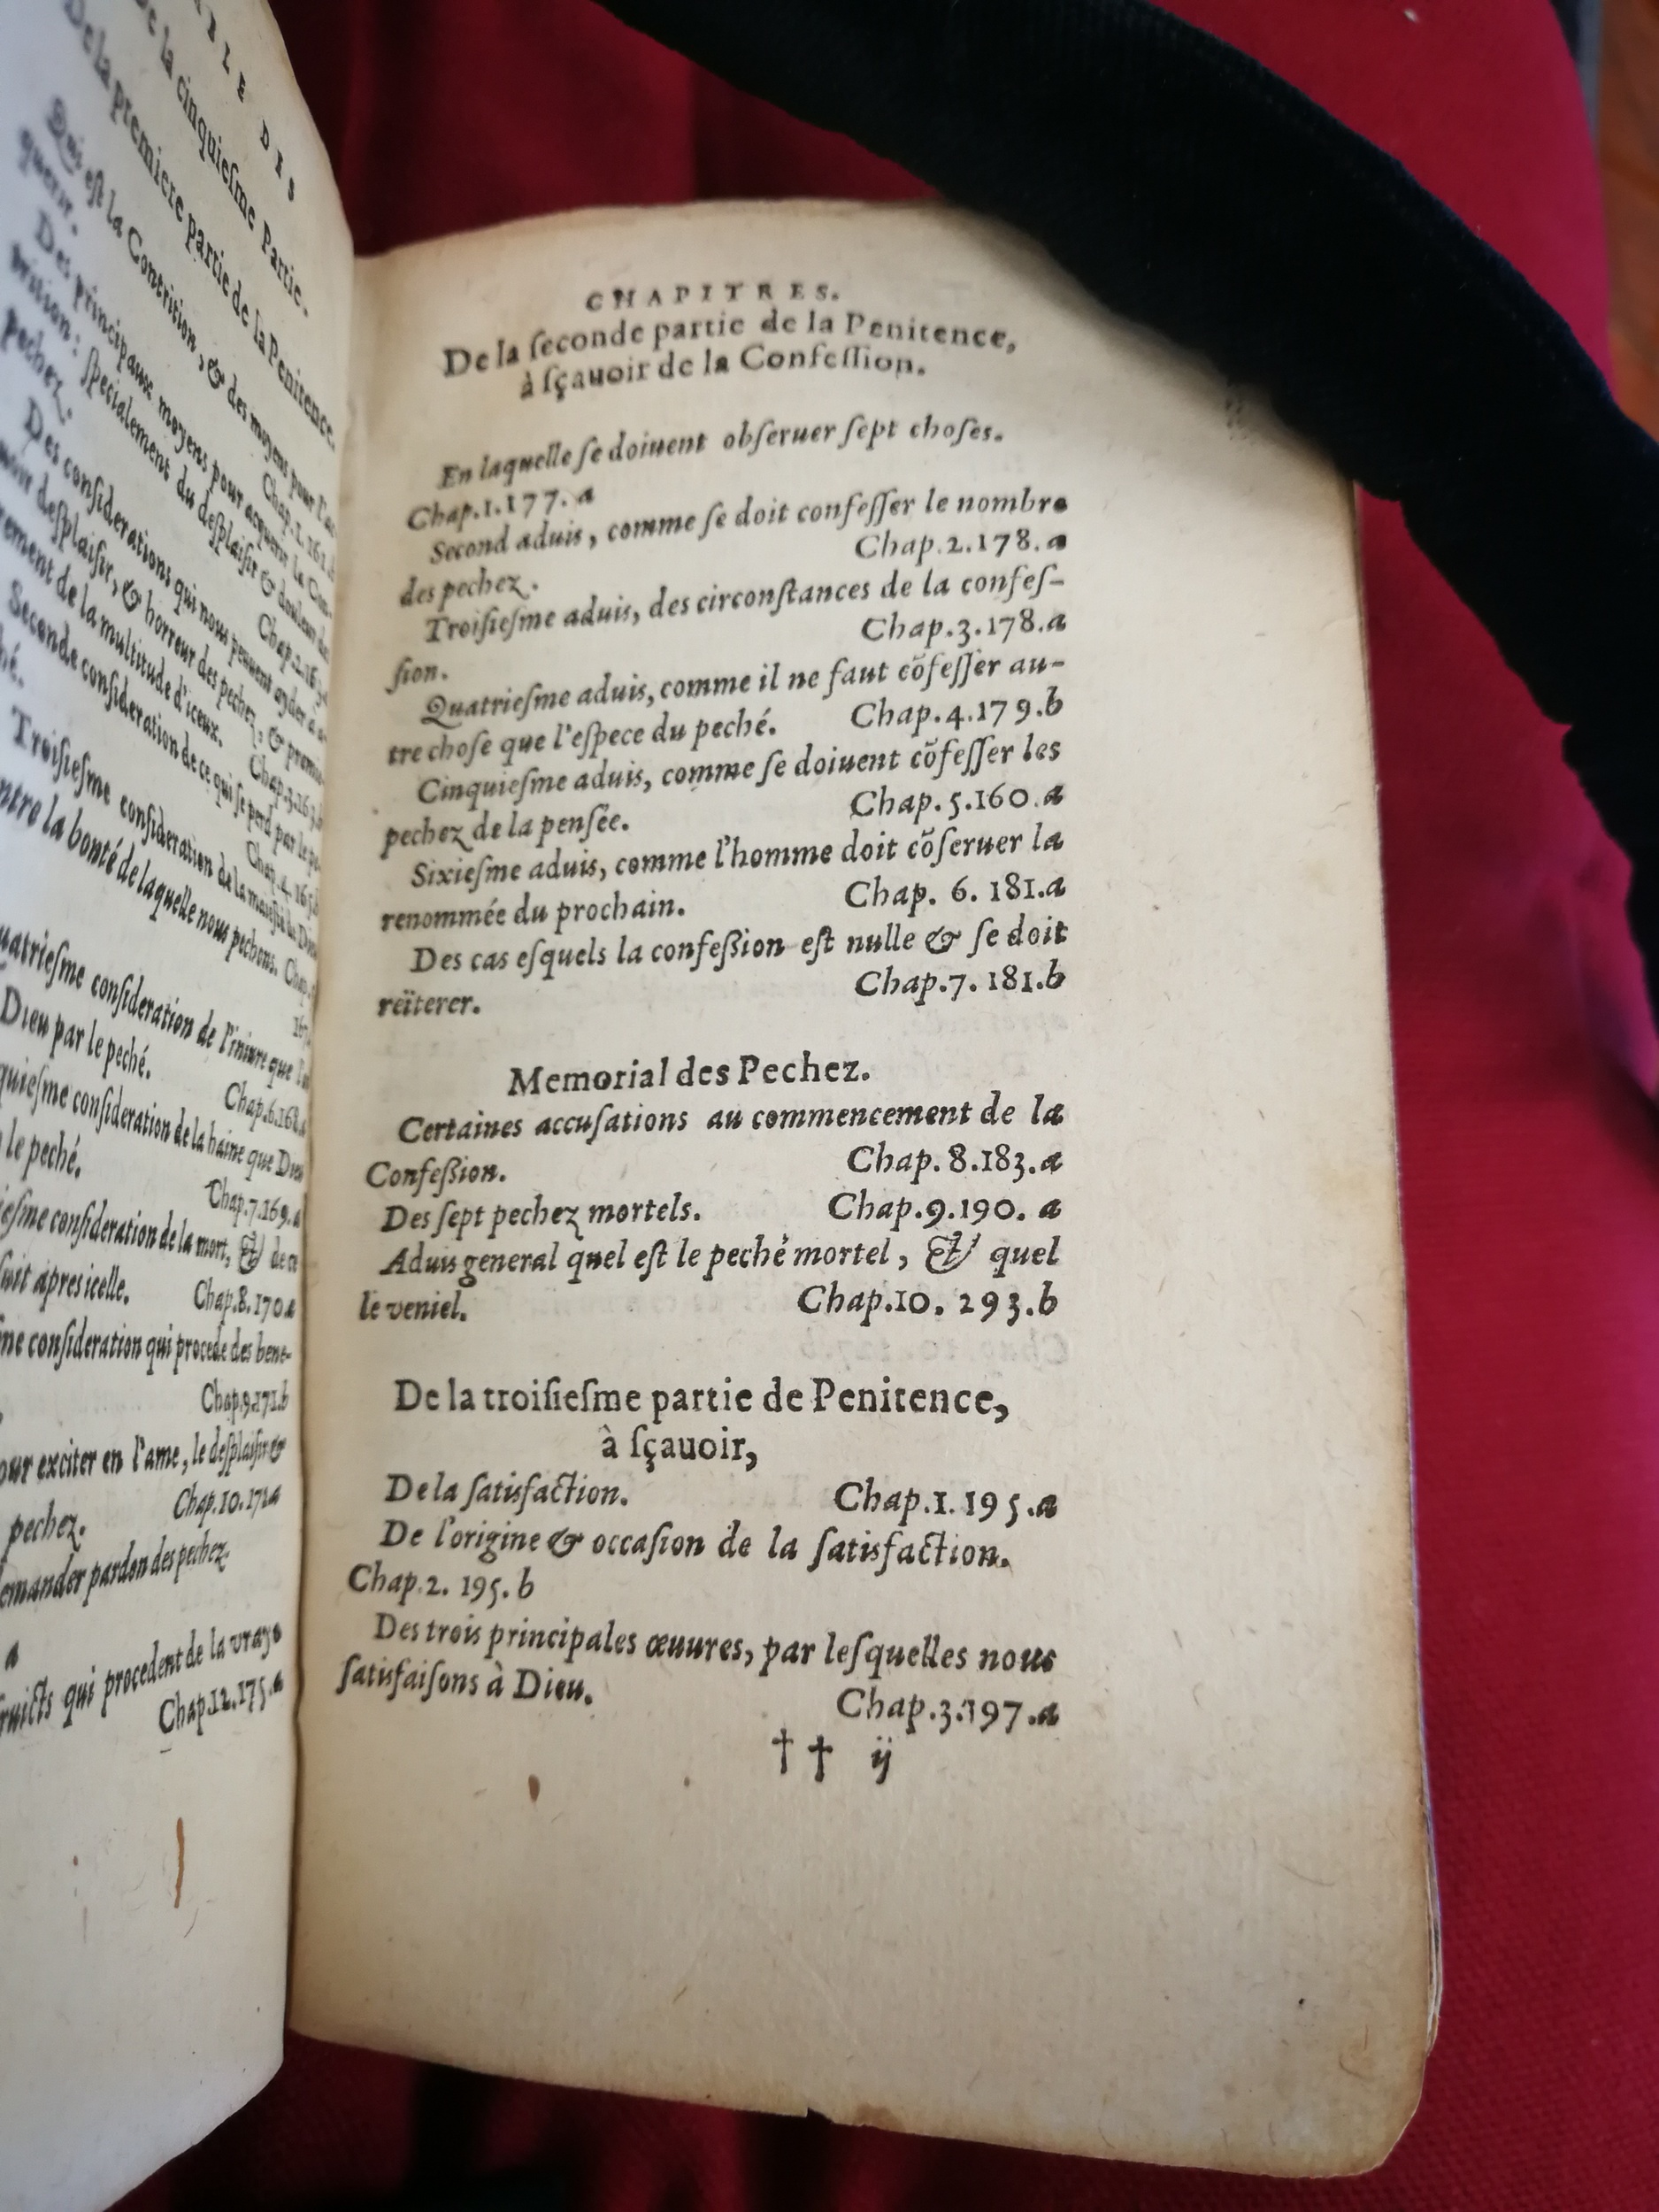 DIS
De la cinquieſme Partie.
De la premiere partie de la Penitence.
Chap.1.161.
Des principaux moyens pour acquerir la Con-
trition: ſpecialement du deſplaiſir & douleur du
pechez.
Des conſiderations qui nous peuuent ayder a a-
deſplaiſir, & horreur des pechez, & premie-
rement de la multitude d'iceux.
Seconde conſideration de ce qui ſe perd par le pe-
ché.
Troiſieſme conſideration de la
la bonté de laquelle nous pechons.
conſideration de l'iniure que
Dieu par le peché.
Chap.6.168.
conſideration de la haine que Dieu
le peché.
Chap.7.169.a
conſideration de la mort, & de ce
apres icelle. Chap.8.170a
conſideration qui procede des bene-
Chap.9.171.b
exciter en l'ame, le deſplaiſir &
pechez. Chap.10.172a
pardon des pechez.
a
qui procedent de la vraye
Chap.12.175.a
CHAPITRES.
De la ſeconde partie de la Penitence,
à ſçauoir de la Confeſſion.
En laquelle ſe doiuent obſeruer ſept choſes.
Chap.1.177.a
Second aduis, comme ſe doit confeſſer le nombre
des pechez. Chap.2.178.a
Troiſieſme aduis, des circonſtances de la confeſ-
ſion. Chap.3.178.a
Quatrieſme aduis, comme il ne faut cõfeſſer au-
tre choſe que l'eſpece du peché. Chap.4.179.b
Cinquieſme aduis, comme ſe doiuent cõfeſſer les
pechez de la penſée. Chap.5.160.a
Sixieſme aduis, comme l'homme doit cõſeruer la
renommée du prochain. Chap. 6. 181.a
Des cas eſquels la confeßion eſt nulle & ſe doit
reïterer. Chap.7. 181.b
Memorial des Pechez.
Certaines accuſations au commencement de la
Confeßion. Chap. 8.183.a
Des ſept pechez mortels. Chap.9.190. a
Aduis general quel eſt le peché mortel, & quel
le veniel. Chap.10. 293.b
De la troiſieſme partie de Penitence,
à ſçauoir,
De la ſatisfaction. Chap.1. 195.a
De l'origine & occaſion de la ſatisfaction.
Chap.2. 195.b
Des trois principales œuures, par leſquelles nous
ſatisfaiſons à Dieu. Chap.3.197.a
† † ij